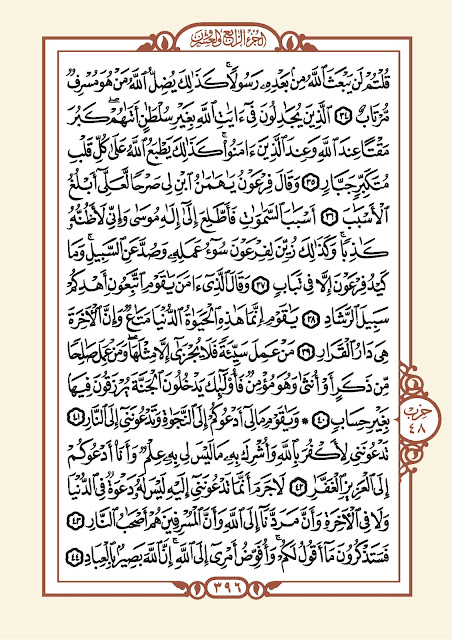 الجزء الرابع والعشرون
قُلْتُمْ لَن يَبْعَثَ ٱللَّهُ مِنۢ بَعْدِهِۦ رَسُولًاۚ كَذَٰلِكَ يُضِلُّ ٱللَّهُ مَنْ هُوَ مُسْرِفٌ
مُّرْتَابٌ ٣٤ ٱلَّذِينَ يُجَٰدِلُونَ فِىٓ ءَايَٰتِ ٱللَّهِ بِغَيْرِ سُلْطَٰنٍ أَتَىٰهُمْۖ كَبُرَ
مَقْتًا عِندَ ٱللَّهِ وَعِندَ ٱلَّذِينَ ءَامَنُواۚ كَذَٰلِكَ يَطْبَعُ ٱللَّهُ عَلَىٰ كُلِّ قَلْبِ
مُتَكَبِّرٍ جَبَّارٍ ٣٥ وَقَالَ فِرْعَوْنُ يَٰهَٰمَٰنُ ٱبْنِ لِى صَرْحًا لَّعَلِّىٓ أَبْلُغُ
ٱلْأَسْبَٰبَ ٣٦ أَسْبَٰبَ ٱلسَّمَٰوَٰتِ فَأَطَّلِعَ إِلَىٰٓ إِلَٰهِ مُوسَىٰ وَإِنِّى لَأَظُنُّهُۥ
كَٰذِبًاۚ وَكَذَٰلِكَ زُيِّنَ لِفِرْعَوْنَ سُوٓءُ عَمَلِهِۦ وَصُدَّ عَنِ ٱلسَّبِيلِۚ وَمَا
كَيْدُ فِرْعَوْنَ إِلَّا فِى تَبَابٍ ٣٧ وَقَالَ ٱلَّذِىٓ ءَامَنَ يَٰقَوْمِ ٱتَّبِعُونِ أَهْدِكُمْ
سَبِيلَ ٱلرَّشَادِ ٣٨ يَٰقَوْمِ إِنَّمَا هَٰذِهِ ٱلْحَيَوٰةُ ٱلدُّنْيَا مَتَٰعٌ وَإِنَّ ٱلْءَاخِرَةَ
هِىَ دَارُ ٱلْقَرَارِ ٣٩ مَنْ عَمِلَ سَيِّئَةً فَلَا يُجْزَىٰٓ إِلَّا مِثْلَهَاۖ وَمَنْ عَمِلَ صَٰلِحًا
مِّن ذَكَرٍ أَوْ أُنثَىٰ وَهُوَ مُؤْمِنٌ فَأُو۟لَٰٓئِكَ يَدْخُلُونَ ٱلْجَنَّةَ يُرْزَقُونَ فِيهَا
بِغَيْرِ حِسَابٍ ٤٠ * وَيَٰقَوْمِ مَا لِىٓ أَدْعُوكُمْ إِلَى ٱلنَّجَوٰةِ وَتَدْعُونَنِىٓ إِلَى ٱلنَّارِ ٤١
حزب
٤٨
تَدْعُونَنِى لِأَكْفُرَ بِٱللَّهِ وَأُشْرِكَ بِهِۦ مَا لَيْسَ لِى بِهِۦ عِلْمٌ وَأَنَا۠ أَدْعُوكُمْ
إِلَى ٱلْعَزِيزِ ٱلْغَفَّٰرِ ٤٢ لَا جَرَمَ أَنَّمَا تَدْعُونَنِىٓ إِلَيْهِ لَيْسَ لَهُۥ دَعْوَةٌ فِى ٱلدُّنْيَا
وَلَا فِى ٱلْءَاخِرَةِ وَأَنَّ مَرَدَّنَآ إِلَى ٱللَّهِ وَأَنَّ ٱلْمُسْرِفِينَ هُمْ أَصْحَٰبُ ٱلنَّارِ ٤٣
فَسَتَذْكُرُونَ مَآ أَقُولُ لَكُمْۚ وَأُفَوِّضُ أَمْرِىٓ إِلَى ٱللَّهِۚ إِنَّ ٱللَّهَ بَصِيرٌۢ بِٱلْعِبَادِ ٤٤
٣٩٦